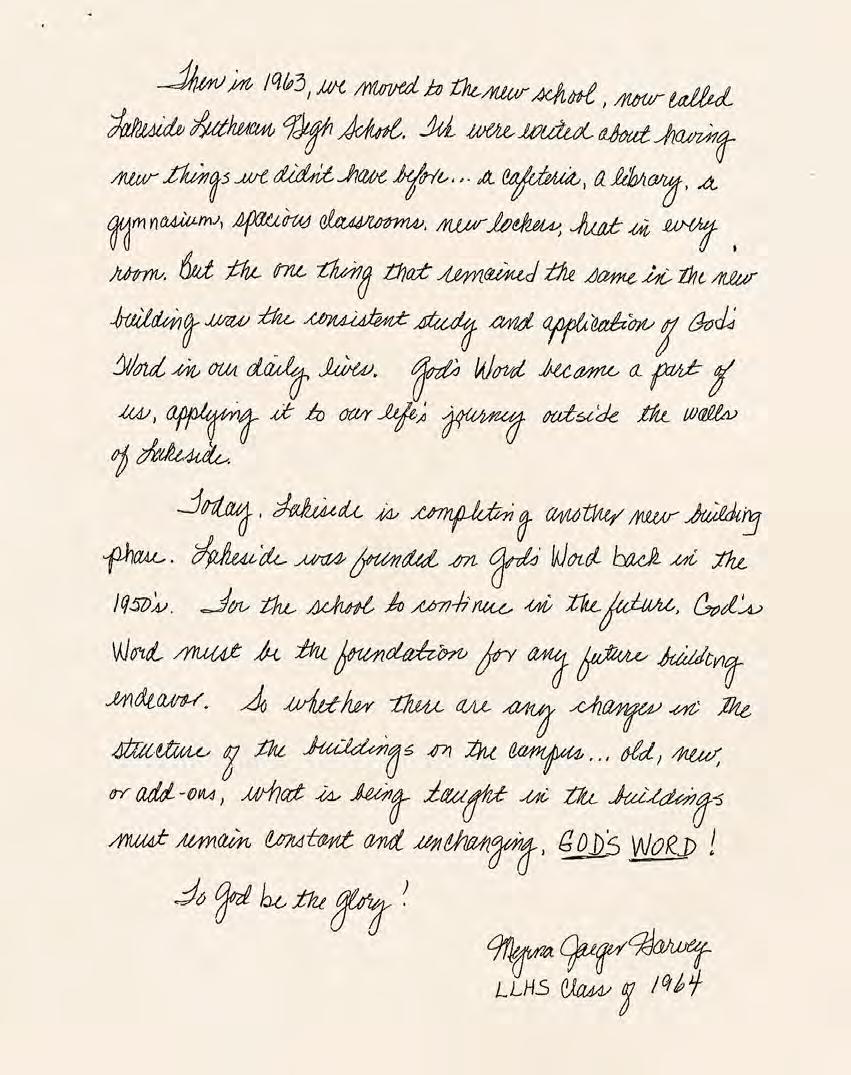 Then in 1963, we moved to the new school, now called
Lakeside Lutheran High School. We were excited about having
new things we didn't have before... a cafeteria, a library, a
gymnasium, spacious classrooms, new lockers, heat in every
room. But the one thing that remained the same in the new
building was the consistent study and application of God's
Word in our daily lives. God's Word became a part of
us, applying it to our life's journey outside the walls
of Lakeside.
Today, Lakeside is completing another new building
phase. Lakeside was founded on God's Word back in the
1950's. For the school to continue in the future, God's
Word must be the foundation for any future building
endeavor. So whether there are any changes in the
structure of the buildings on the campus... old, new,
or add-ons, what is being taught in the buildings
must remain constant and unchanging, GOD'S WORD!
To God be the glory!
Jaeger Harvey
LLHS Class of 1964